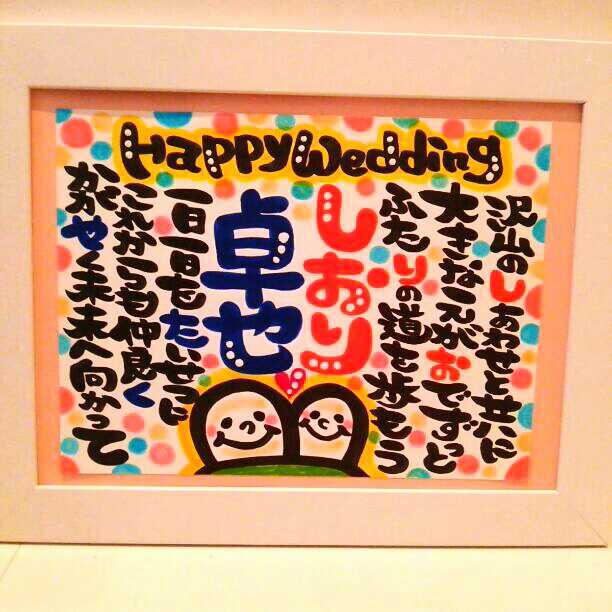 Happy Wedding
沢山のしあわせと共に
大きなえがおでずっと
ふたりの道を歩もう
しおり
卓也
一日一日をたいせつに
これからも仲良く
かがやく未来へ向かって